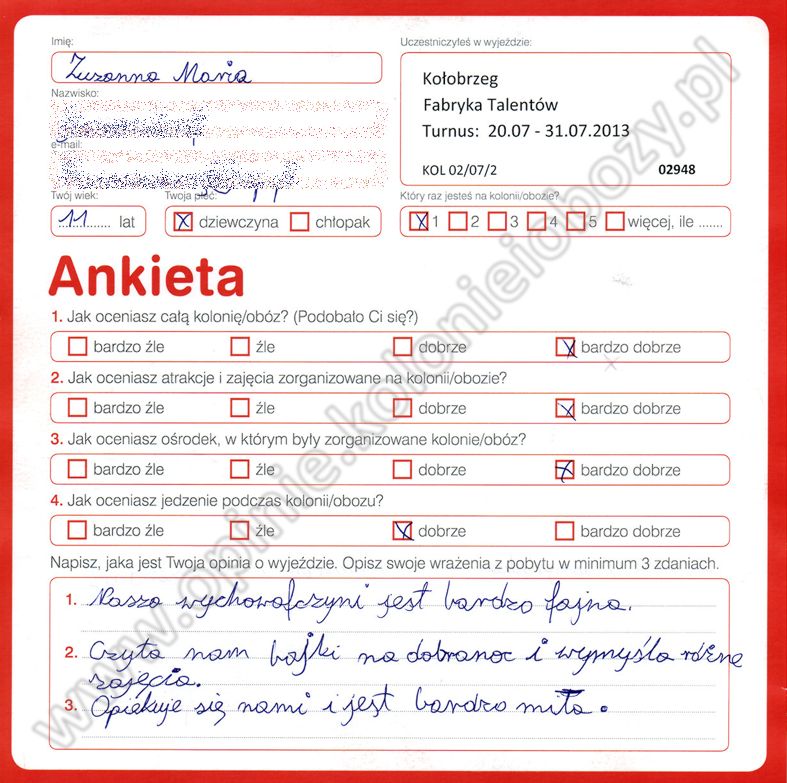 Imię:
Zuzanna Maria
Nazwisko:
e-mail:
Twój wiek:
11 lat
Twoja płeć:
dziewczyna chłopak
Uczestniczyłeś w wyjeździe:
Kołobrzeg
Fabryka Talentów
Turnus: 20.07 - 31.07.2013
KOL 02/07/2 02948
Który raz jesteś na kolonii/obozie?
1 2 3 4 5 więcej, ile .......
Ankieta
1. Jak oceniasz całą kolonię/obóz? (Podobało Ci się?)
bardzo źle źle dobrze bardzo dobrze
2. Jak oceniasz atrakcje i zajęcia zorganizowane na kolonii/obozie?
bardzo źle źle dobrze bardzo dobrze
3. Jak oceniasz ośrodek, w którym były zorganizowane kolonie/obóz?
bardzo źle źle dobrze bardzo dobrze
4. Jak oceniasz jedzenie podczas kolonii/obozu?
bardzo źle źle dobrze bardzo dobrze
Napisz, jaka jest Twoja opinia o wyjeździe. Opisz swoje wrażenia z pobytu w minimum 3 zdaniach.
1. Nasza wychowafczyni jest bardzo fajna.
2. Czyta nam bajki na dobranoc i wymyśla różne
zajęcia.
3. Opiekuje się nami i jest bardzo miła.
www.opinie.kolonieiobozy.pl